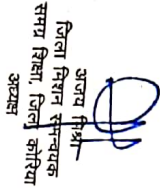 अजय मिश्रा
जिला मिशन समन्वयक
समग्र शिक्षा जिला कोरिया
अध्यक्ष